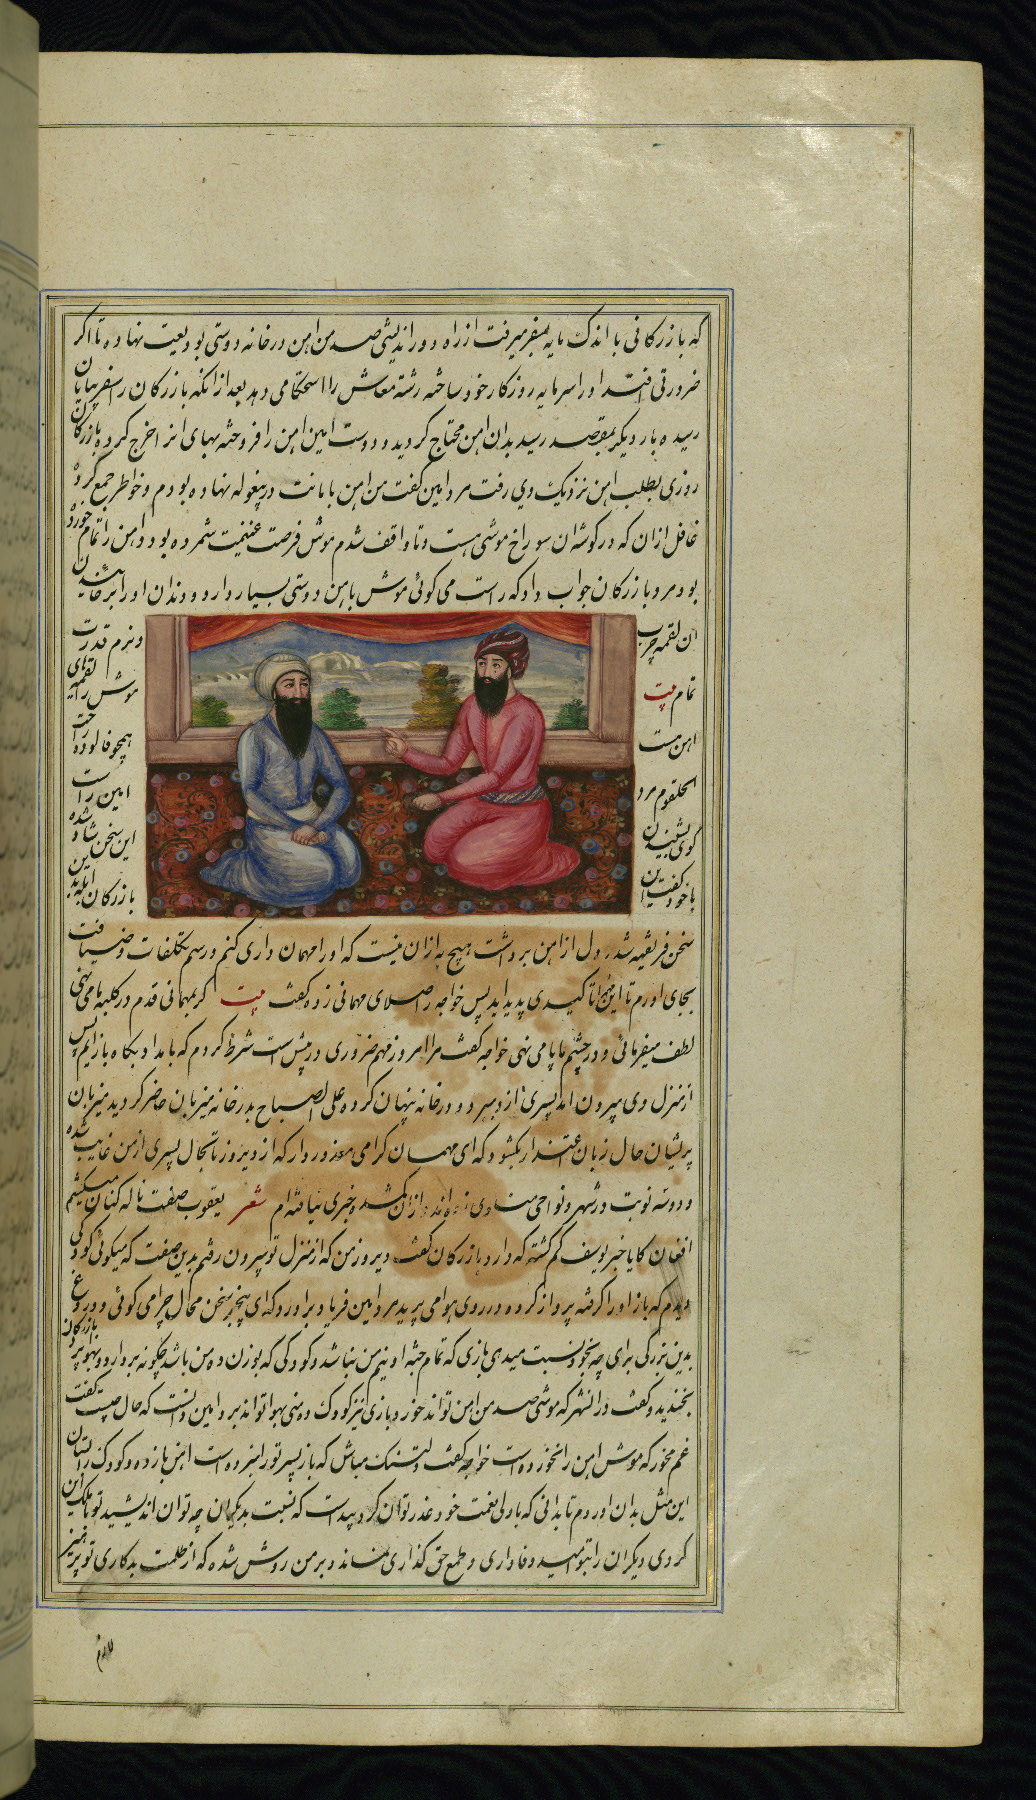 که بازرکانی با اندک مایه بسفر میرفت از راه دور اندیشی صد من اهن در خانه دوستی بودیعت نهاده تا اکر
ضرورتی افتد اورا سرمایه روزکار خود ساخته رشته معاش را استحکامی دهد بعد ازانکه بازرکان را سفر بپایان
رسیده بار دیکر بمقصد رسید بدان اهن محتاج کردید و دوست امین اهن را فروخته بهای انرا خرج کرده بازرکان
روزی بطلب اهن نزدیک وی رفت مرد امین کفت من اهن بامانت در پیغوله نهاده بودم و خاطر جمع کرده
غافل ازان که در کوشه ان سوراخ موشی هست و تا واقف شدم موش فرصت غنیمت شمرده بود و اهن را تمام خورده
بود مرد بازرکان جواب داد که راست می کوئی موش باهن دوستی بسیار دارد و دندان اورا بر خائیدن
ان لقمه چرب و نرم قدرت
تمام بیت موش را لقمهای
اهن هست همچو فالوده راحت
الحلقوم مرد امین راست
کوی بشنیدن این سخن شاد شده
با خود کفت این بازرکان ابله بدین
سخن فریفته شد و دل از اهن برداشت هیچ به ازان نیست که اورا مهمان داری کنم و رسم تکلفات و ضیافت
بجای اورم تا این مهم را تاکیدی پدید اید پس خواجه را صلای مهمانی زده کفت بیت کر بمهمانی قدم در کلبه ما می نهی
لطف میفرمائی و در چشم ما پا می نهی خواجه کفت مرا امروز مهم ضروری در پیش است شرط کردم که بامداد پکاه باز ایم پس
از منزل وی بیرون امد پسری از و ببرد و در خانه پنهان کرده علی الصباح بدر خانه میزبان حاضر کردید میزبان
پریشان حال زبان اعتذار بکشود که ای مهمان کرامی معذور دار که از دیروز تا بحال پسری از من غایب شده
و دو سه نوبت در شهر و نواحی منادی زده اند و ازان کمشده خبری نیافته ام شعر یعقوب صفت ناله کنان میکشیم
افغان کایا خبر یوسف کم کشته که دارد بازرکان کفت دیروز من که از منزل تو بیرون رفتم بدین صفت که میکوئی کودکی
دیدم که باز اورا کرفته پرواز کرده در روی هوا می پرید مرد امین فریاد براورد که ای بیخبر سخن محال چرا می کوئی و دروغ
بدین بزرکی برای چه بخود نسبت میدی بازی که تمام جثه او نیم من نباشد و کودکی که بوزن ده من باشد چکونه بردارد و بهوا برد بازرکان
بخندید و کفت در انشهر که موشی صد من اهن تواند خورد بازی نیز کودک ده منی بهوا تواند برد امین دانست که حال چیست کفت
غم مخور که موش اهن را نخورده است خواجه کفت دلتنک مباش که باز پسر تو را نبرده است اهن باز ده و کودک را بستان
این مثل بدان اوردم تا بدانی که با ولی نعمت خود غدر توان کرد پیداست که نسبت بدیکران چه توان اندیشید تو با ملک این
کردی دیکران را بتو امید وفاداری و طمع حق کذاری نماند و بر من روشن شده که از ظلمت بدکاری تو پرهیز